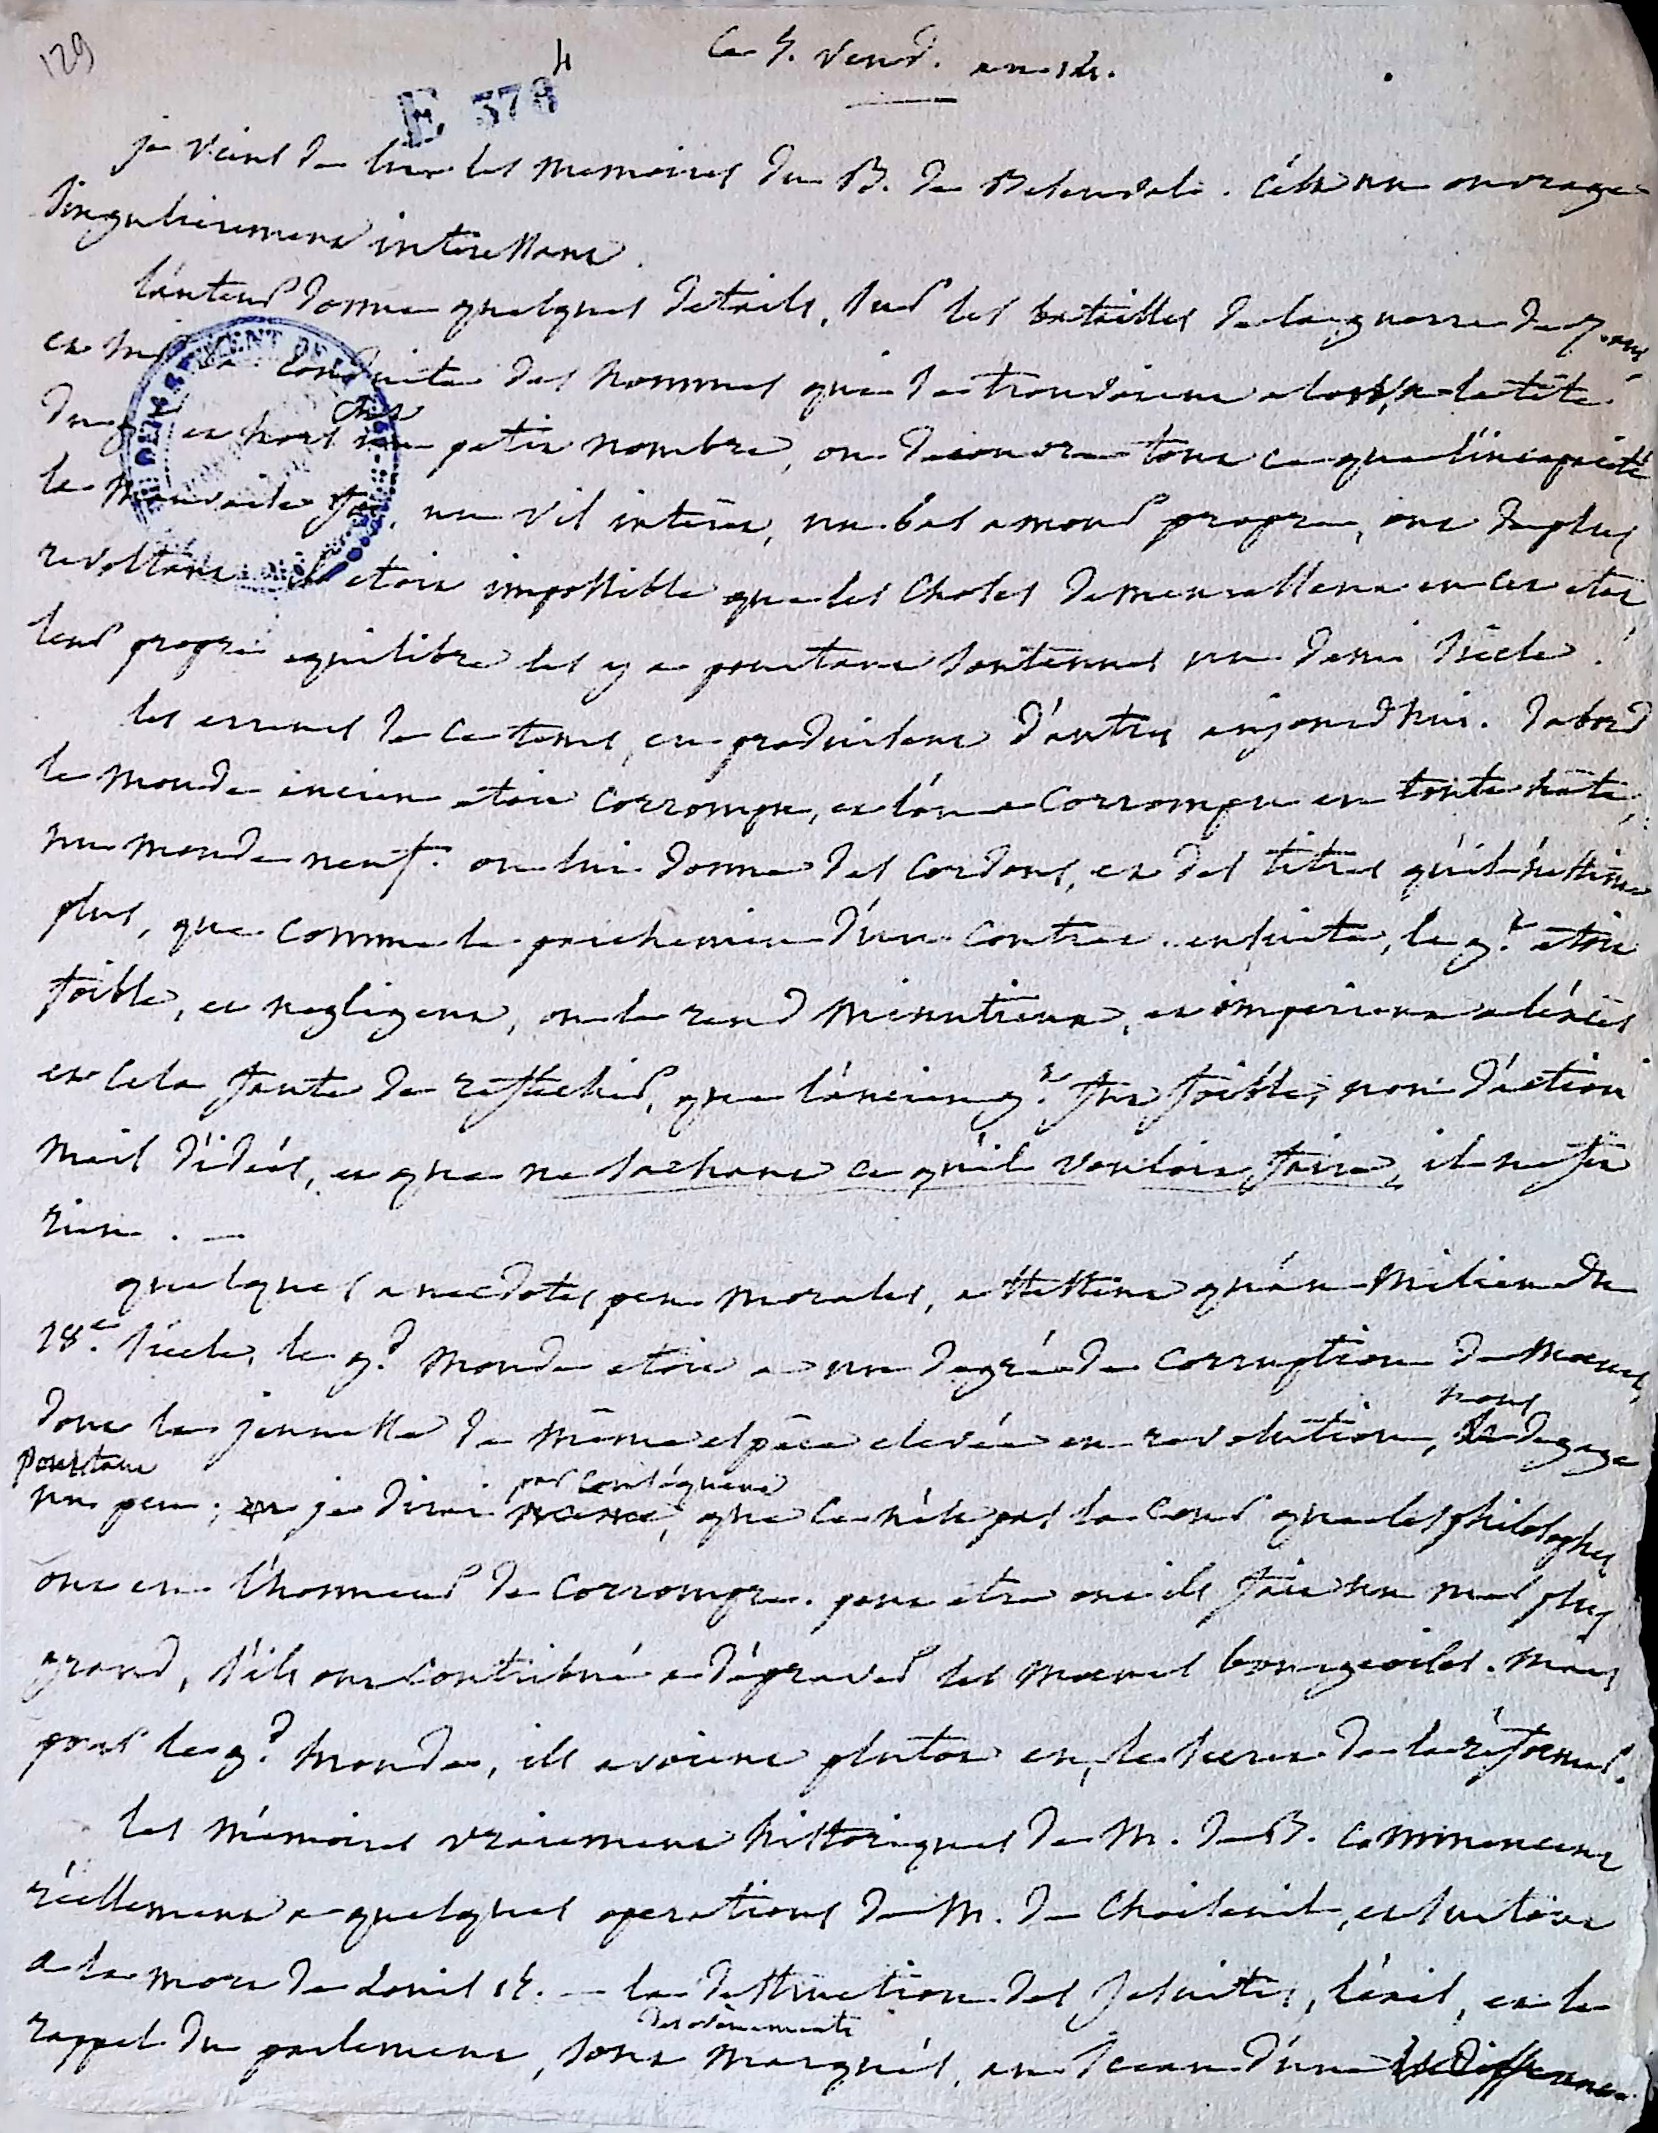 129
4
ce 5. vend. an 14.
E 378
je viens de lire les memoires du B. de Besenval. c'est un ouvrage
singulierement interessant.
l'auteur donne quelques details, sur les batailles de la guerre de 7. ans,
et sur la conduite des hommes qui se trouvoient alors, a la tête
du gt et hors un petit nombre, on decouvre tout ce que l'incapacité
la mauvaise foi, un vil interêt, un bas amour propre, ont de plus
revoltant. il etoit impossible que les choses demeurassent en cet etat
leur propre equilibre les y a pourtant soutenues un demi siècle.
les erreurs de ce tems, en produisent d'autres aujourd'hui. d'abord
le monde ancien etoit corrompu, et l'on a corrompu en toute hâte,
un monde neuf. on lui donne des cordons, et des titres qu'il n'estime
plus, que comme le parchemin d'un contrat. ensuite, le gt etoit
foible, et negligent, on le rend minutieux, et imperieux a l'excès
et cela faute de reflechir, que l'ancien gt fut foible, non d'action
mais d'idées, et que ne sachant ce qu'il vouloit faire, il ne fit
rien. —
quelques anecdotes peu morales, attestent qu'au milieu du
18e. siècle, le gd monde etoit a un degré de corruption de moeurs,
dont la jeunesse de même espèce elevée en revolution, nous degage
pourtant
un peu; je dirai par conséquent, que ce n'est pas la cour que les philosophes
ont eu l'honneur de corrompre. peut etre ont ils fait un mal plus
grand, s'ils ont contribué a dépraver les moeurs bourgeoises. mais
pour le gd monde, ils avoient plutot eu, le secret de la réformer.
les mémoires vraiement historiques de M. de B. commencent
réellement a quelques operations de M. de Choiseuil, et surtout
a la mort de Louis 15. — la destruction des Jesuites, l'exil, et le
des evenements
rappel du parlement, sont marqués, au sceau d'une